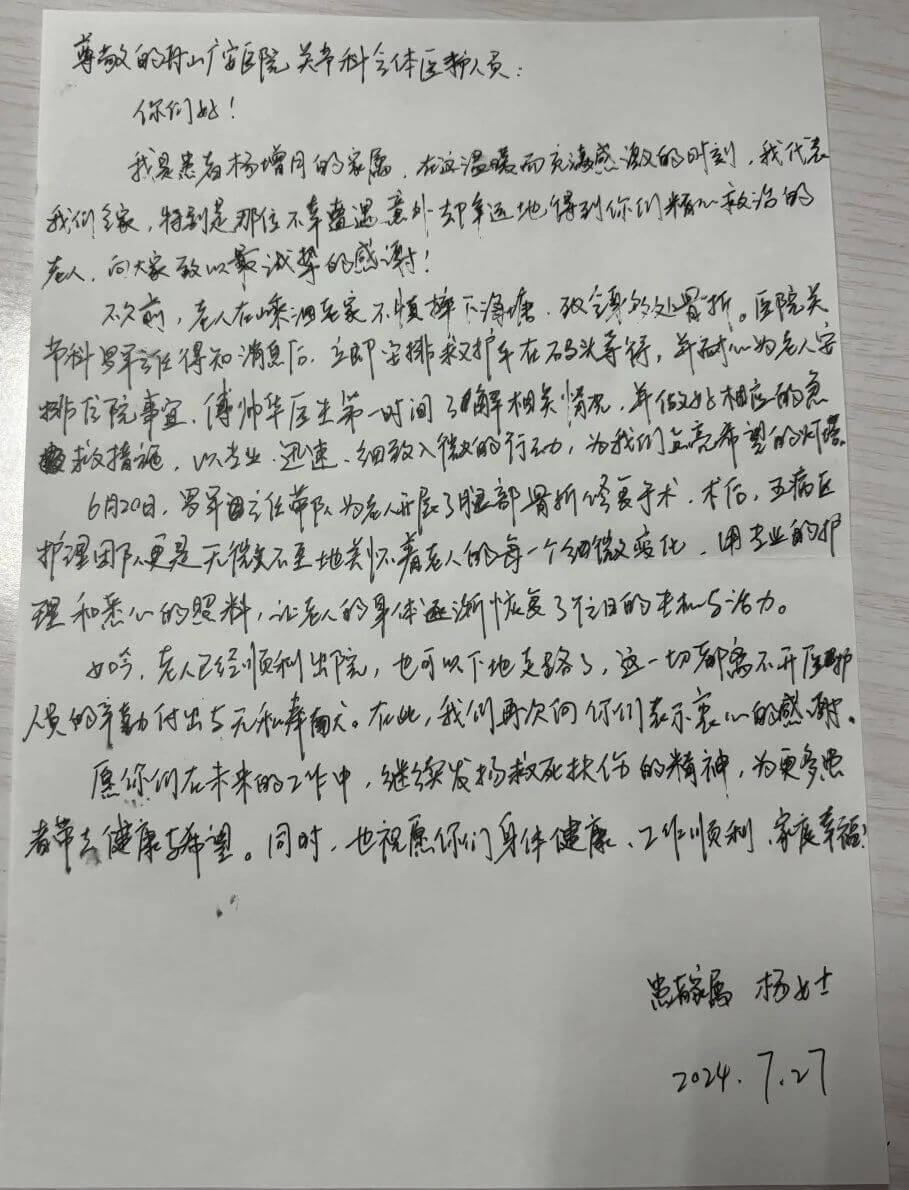 尊敬的舟山广安医院关节科全体医护人员：
你们好！
我是患者杨增月的家属，在这温暖而充满感激的时刻，我代表
我们全家，特别是那位不幸遭遇意外却幸运地得到你们精心救治的
老人，向大家致以最诚挚的感谢！
不久前，老人在嵊泗老家不慎摔下海塘，致全身多处骨折。医院关
节科罗军主任得知消息后，立即安排救护车在码头等待，并耐心为老人安
排住院事宜、傅帅华医生第一时间了解相关情况，并做好相应的急
救措施，以专业、迅速、细致入微的行动，为我们点亮希望的灯塔
6月20日，罗军主任带队为老人开展了腿部骨折修复手术。术后，五病区
护理团队更是无微不至地关怀着老人的每一个细微变化，用专业的护
理和悉心的照料，让老人的身体逐渐恢复了往日的生机与活力。
如今，老人已经顺利出院，也可以下地走路了，这一切都离不开医护
人员的辛勤付出与无私奉献。在此，我们再次向你们表示衷心的感谢。
愿你们在未来的工作中，继续发扬救死扶伤的精神，为更多患
者带去健康与希望。同时，也祝愿你们身体健康、工作顺利、家庭幸福！
患者家属 杨女士
2024.7.27